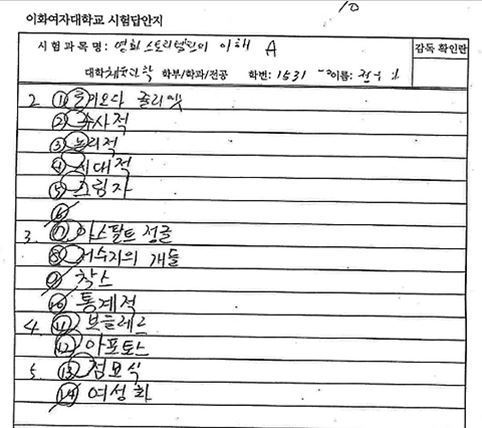 10
이화여자대학교 시험답안지
시험과목명: 영화스토리텔링의 이해 A 감독 확인란
대학 체육과학 학부/학과/전공 학번: 1531 이름:
2 ① 줄리엣
② 수사적
③ 논리적
④ 시대적
⑤ 그림자
⑥
3. ⑦ 아스팔트 정글
⑧ 저수지의 개들
⑨ 착스
⑩ 통계적
4. ⑪ 보들레르
⑫ 아포토스
5. ⑬ 점묘식
⑭ 여성화